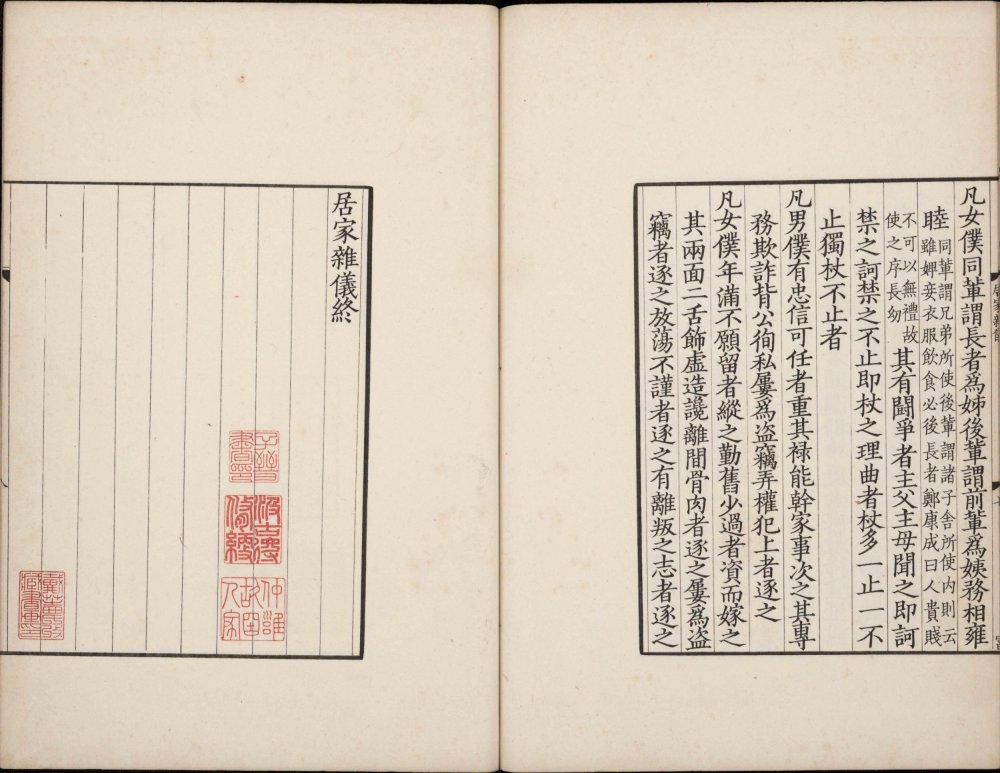 凡女僕同輩謂長者爲姊後輩謂前輩爲姨務相雍
睦同輩謂兄弟所使後輩謂諸子舍所使內則云
雖婢妾衣服飲食必後長者鄭康成曰人貴賤
不可以無禮故
使之序長幼
其有鬪爭者主父主母聞之即訶
禁之訶禁之不止即杖之理曲者杖多一止一不
止獨杖不止者
凡男僕有忠信可任者重其祿能幹家事次之其專
務欺詐背公徇私屢爲盜竊弄權犯上者逐之
凡女僕年滿不願留者縱之勤舊少過者資而嫁之
其兩面二舌飾虛造讒離間骨肉者逐之屢爲盜
竊者逐之放蕩不謹者逐之有離叛之志者逐之
居家雜儀
居家雜儀終